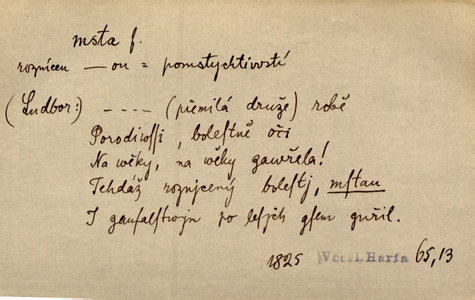 msta f.
roznícen — ou = pomstychtivostí
(Ludbor:) - - - - (přemilá druže) robě
Porodiwssi, bolestně oči
Na wěky, na wěky zawřela!
Tehdáž roznjcený bolestj, mstau
I
po lesjch gsem zuřil.
1825 Vocel, Harfa 65,13